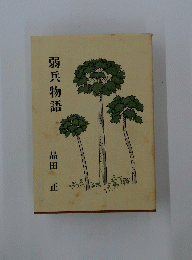 弱兵物語
品田 正